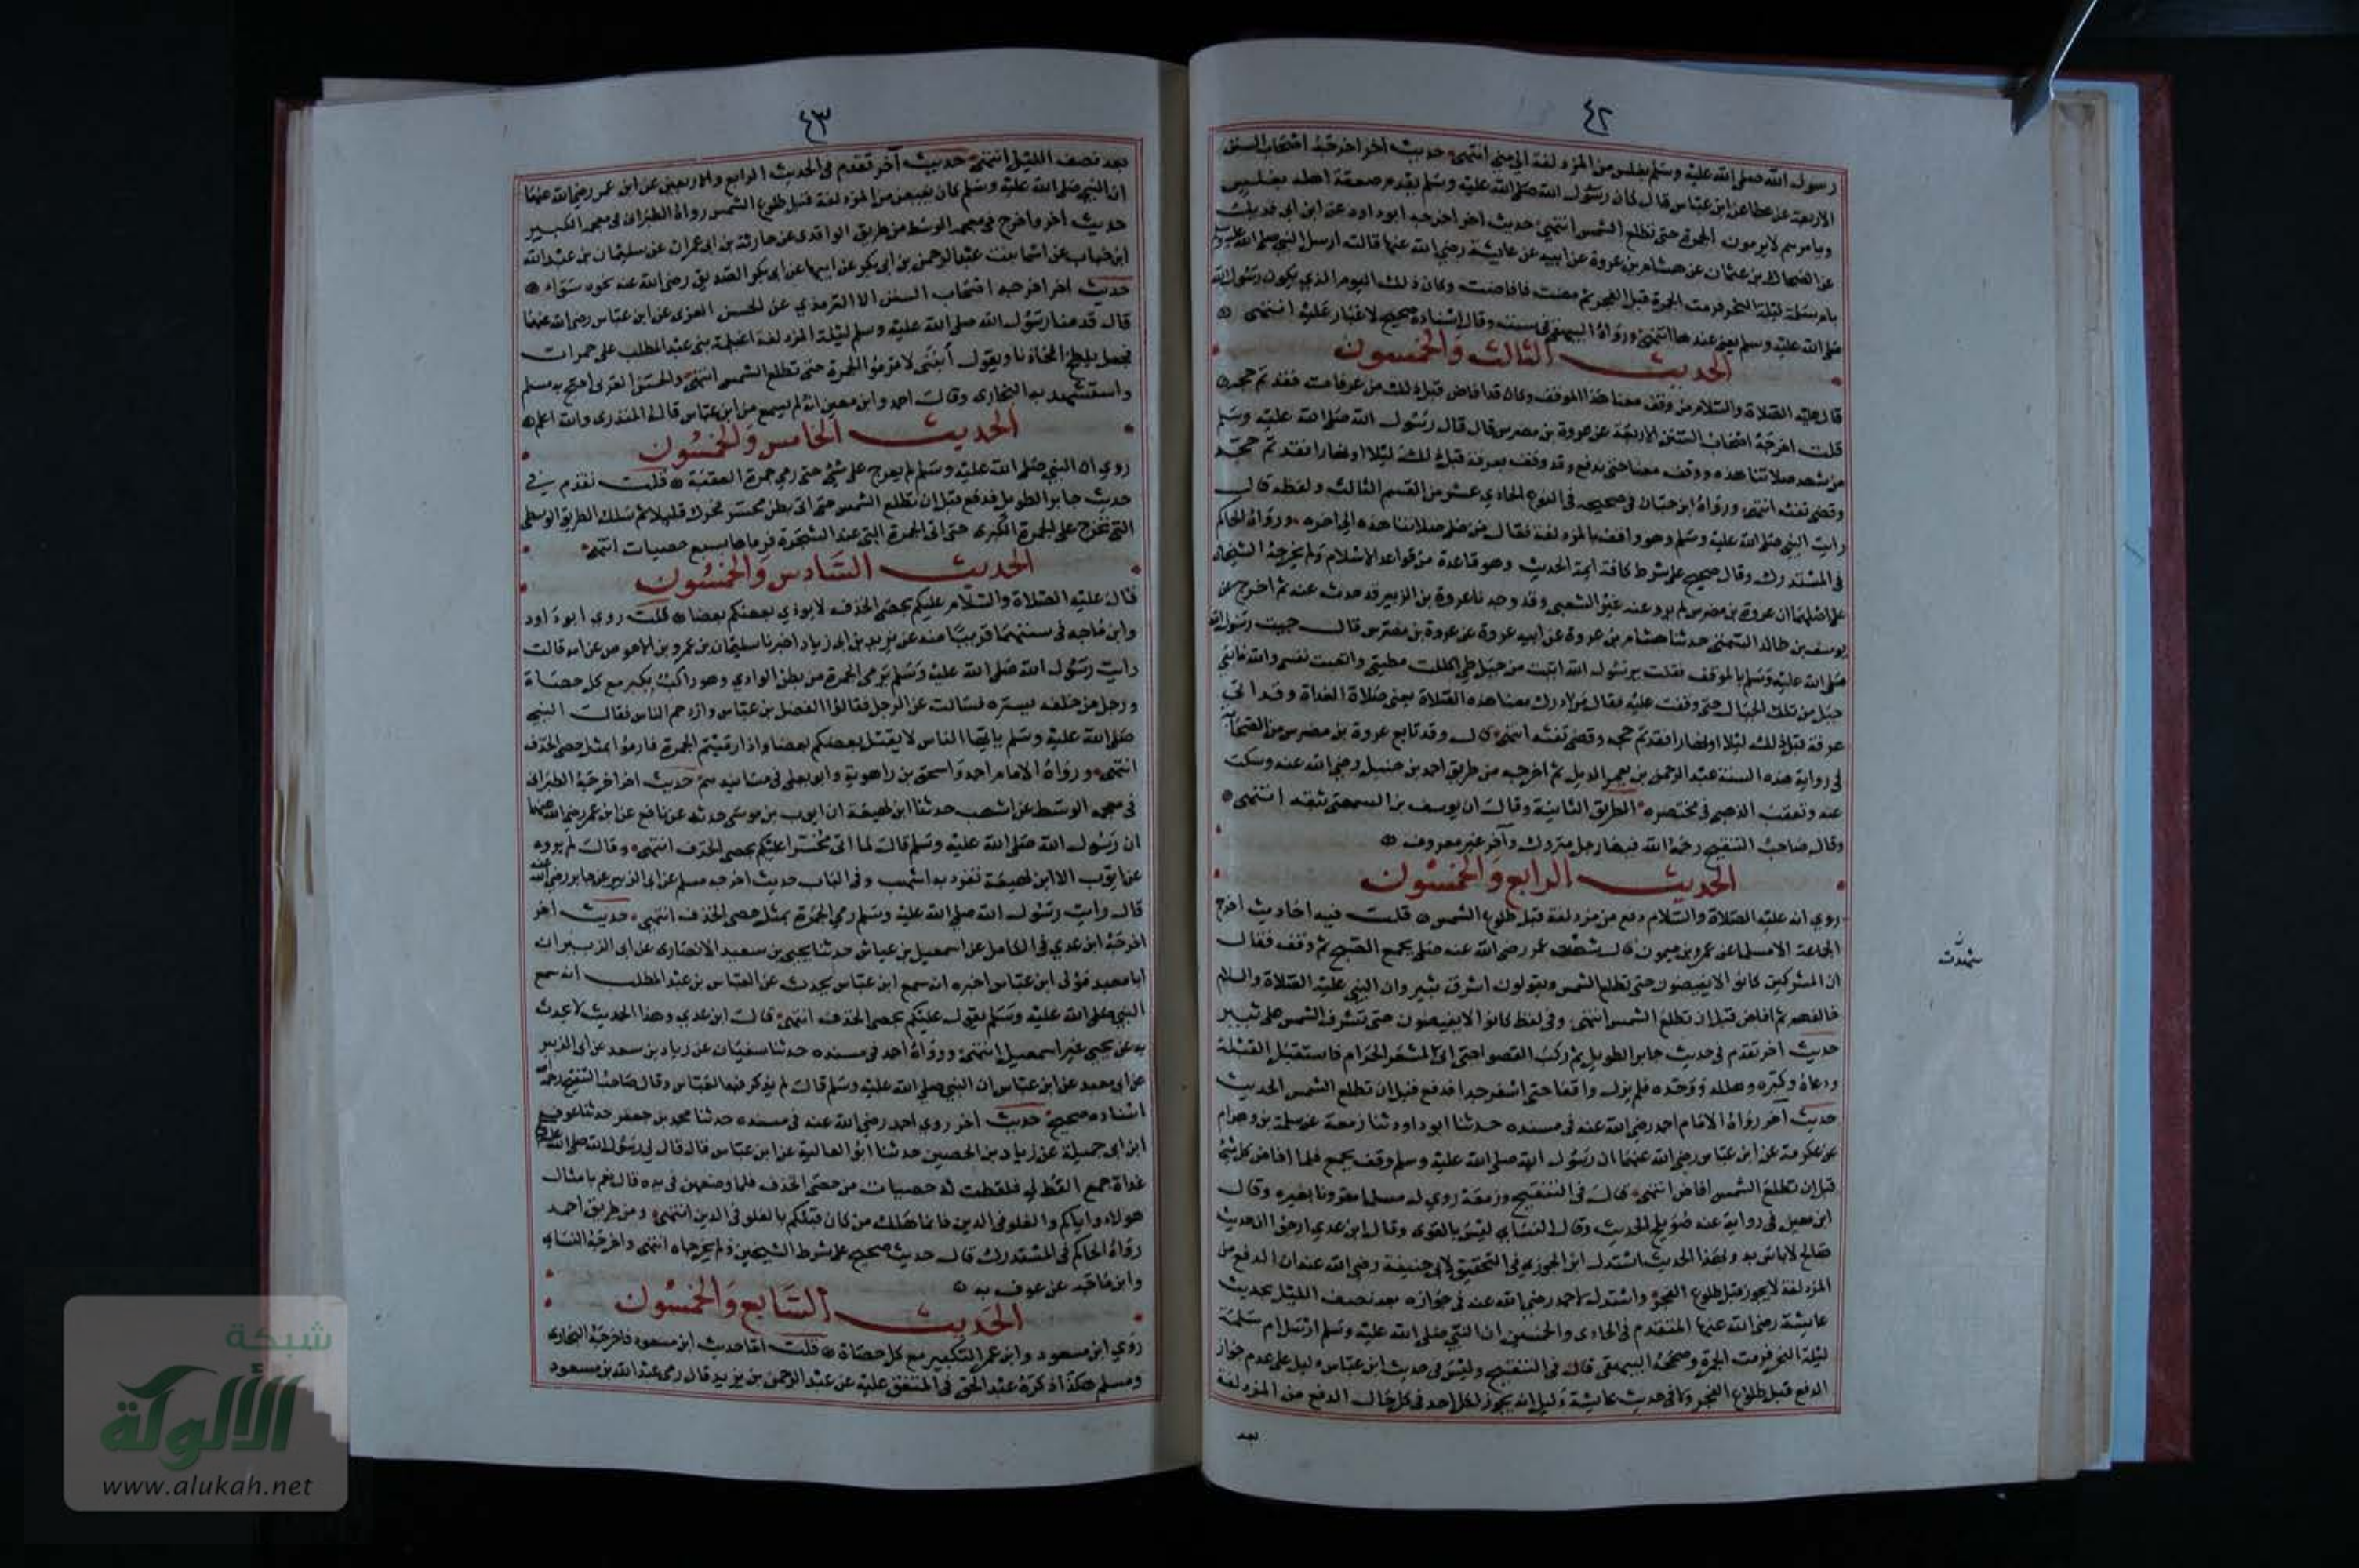 ٤٢
رسول الله صلى الله عليه وسلم بغلس من المزدلفة الى منى انتهى حديث اخر اخرجه اصحاب السنن
الاربعة عن عطا عن ابن عباس قال كان رسول الله صلى الله عليه وسلم يقدم ضعفة اهله بغلس
ويامرهم لا يرمون الجمرة حتى تطلع الشمس انتهى حديث اخر اخرجه ابو داود عن ابن ابى فديك
عن الضحاك بن عثمان عن هشام بن عروة عن ابيه عن عايشة رضي الله عنها قالت ارسل النبي صلى الله عليه وسلم
بام سلمة ليلة النحر فرمت الجمرة قبل الفجر ثم مضت فافاضت وكان ذلك اليوم الذي يكون رسول الله
صلى الله عليه وسلم يعني عندها انتهى ورواه البيهقي في سننه وقال اسناده صحيح لا غبار عليه انتهى
الحديث الثالث والخمسون
قال عليه الصلاة والسلام من وقف معنا هذا الموقف وكان قد افاض قبل ذلك من عرفات فقد تم حجه
قلت اخرجه اصحاب السنن الاربعة عن عروة بن مضرس قال قال رسول الله صلى الله عليه وسلم
من شهد صلاتنا هذه ووقف معنا حتى يدفع وقد وقف بعرفة قبل ذلك ليلا او نهارا فقد تم حجه
وقضى تفثه انتهى ورواه ابن حبان في صحيحه في النوع الحادي عشر من القسم الثالث ولفظه قال
رايت النبي صلى الله عليه وسلم وهو واقف بالمزدلفة فقال من صلى صلاتنا هذه الى اخره ورواه الحاكم
في المستدرك وقال صحيح على شرط كافة ايمة الحديث وهو قاعدة من قواعد الاسلام ولم يخرجه الشيخان
على اصلهما ان عروة بن مضرس لم يرو عنه غير الشعبي وقد وجدنا عروة بن الزبير قد حدث عنه ثم اخرج عن
يوسف بن خالد السمتي حدثنا هشام بن عروة عن ابيه عروة عن عروة بن مضرس قال جيت رسول الله
صلى الله عليه وسلم بالموقف فقلت يرسول الله اتيت من جبل طي اكللت مطيتي واتعبت نفسي والله ما بقي
جبل من تلك الجبال حتى وقفت عليه فقال من ادرك معنا هذه الصلاة يعني صلاة الغداة وقد اتى
عرفة قبل ذلك ليلا او نهارا فقد تم حجه وقضى تفثه انتهى قال وقد تابع عروة بن مضرس من الصحابة
في رواية هذه السنة عبد الرحمن بن يعمر الديلي ثم اخرجه من طريق احمد بن حنبل رضي الله عنه وسكت
عنه وتعقب الذهبي في مختصره الطريق الثانية وقال ان يوسف بن السمتي ثقة انتهى
وقال صاحب التنقيح رحمه الله فيها رجل متروك وآخر غير معروف
الحديث الرابع والخمسون
روي انه عليه الصلاة والسلام دفع من مزدلفة قبل طلوع الشمس قلت فيه احاديث اخرج
الجماعة الا مسلما عن عمرو بن ميمون قال شهدت عمر رضي الله عنه صلى بجمع الصبح ثم وقف فقال
ان المشركين كانوا لا يفيضون حتى تطلع الشمس ويقولون اشرق ثبير وان النبي عليه الصلاة والسلام
خالفهم ثم افاض قبل ان تطلع الشمس انتهى وفي لفظ كانوا لا يفيضون حتى تشرق الشمس على ثبير
حديث اخر تقدم في حديث جابر الطويل ثم ركب القصوا حتى اتى المشعر الحرام فاستقبل القبلة
ودعاه وكبره وهلله ووحده فلم يزل واقفا حتى اسفر جدا فدفع قبل ان تطلع الشمس الحديث
حديث آخر رواه الامام احمد رضي الله عنه في مسنده حدثنا ابو داود ثنا زمعة عن سلمة بن وهرام
عن عكرمة عن ابن عباس رضي الله عنهما ان رسول الله صلى الله عليه وسلم وقف بجمع فلما اضاء كل شي
قبل ان تطلع الشمس افاض انتهى قال في التنقيح وزمعة روى له مسلم مقرونا بغيره وقال
ابن معين في رواية عنه صويلح الحديث وقال النسابي ليس بالقوى وقال ابن عدي ارجو ان حديثه
صالح لا باس به وبهذا الحديث استدل ابن الجوزي في التحقيق لابي حنيفة رضي الله عنه ان الدفع من
المزدلفة لا يجوز قبل طلوع الفجر واستدل لاحمد رضي الله عنه في جوازه بعد نصف الليل بحديث
عايشة رضي الله عنها المتقدم في الحادى والخمسين ان النبي صلى الله عليه وسلم ارسل ام سلمة
ليلة النحر فرمت الجمرة وصححه البيهقي قال في التنقيح وليس في حديث ابن عباس دليل على عدم جواز
الدفع قبل طلوع الفجر ولا في حديث عايشة دليل انه يجوز لكل احد في كل حال الدفع من المزدلفة
بعد
شهدت
٤٣
بعد نصف الليل انتهى حديث آخر تقدم في الحديث الرابع والاربعين عن ابن عمر رضي الله عنهما
ان النبي صلى الله عليه وسلم كان يفيض من المزدلفة قبل طلوع الشمس رواه الطبراني في معجمه الكبير
حديث اخر واخرج في معجمه الوسط من طريق الواقدى عن حارثة بن ابى عمران عن سليمان بن عبد الله
ابن خباب عن اسما بنت عبد الرحمن بن ابى بكر عن ابيها عن ابى بكر الصديق رضي الله عنه نحوه سواء
حديث اخر اخرجه اصحاب السنن الا الترمذي عن الحسن العرنى عن ابن عباس رضي الله عنهما
قال قدمنا رسول الله صلى الله عليه وسلم ليلة المزدلفة اغيلمة بنى عبد المطلب على حمرات
فجعل يلطح افخاذنا ويقول أبنى لا ترموا الجمرة حتى تطلع الشمس انتهى والحسن العرنى احتج به مسلم
واستشهد به البخارى وقال احمد وابن معين انه لم يسمع من ابن عباس قاله المنذرى والله اعلم
الحديث الخامس والخمسون
روي ان النبي صلى الله عليه وسلم لم يعرج على شي حتى رمى جمرة العقبة قلت تقدم في
حديث جابر الطويل فدفع قبل ان تطلع الشمس حتى اتى بطن محسر فحرك قليلا ثم سلك الطريق الوسطى
التي تخرج على الجمرة الكبرى حتى اتى الجمرة التي عند الشجرة فرماها بسبع حصيات انتهى
الحديث السادس والخمسون
قال عليه الصلاة والسلام عليكم بحصى الخذف لا يوذي بعضكم بعضا قلت روى ابو داود
وابن ماجه في سننهما قريبا منه عن يزيد بن ابى زياد اخبرنا سليمان بن عمرو بن الاحوص عن امه قالت
رايت رسول الله صلى الله عليه وسلم يرمي الجمرة من بطن الوادي وهو راكب يكبر مع كل حصاة
ورجل من خلفه يستره فسالت عن الرجل فقالوا الفضل بن عباس وازدحم الناس فقال النبي
صلى الله عليه وسلم يايها الناس لا يقتل بعضكم بعضا واذا رميتم الجمرة فارموا بمثل حصى الخذف
انتهى ورواه الامام احمد واسحق بن راهوية وابو يعلى في مسانيدهم حديث اخر اخرجه الطبرانى
في معجمه الوسط عن اشهب حدثنا ابن لهيعة ان ايوب بن موسى حدثه عن نافع عن ابن عمر رضي الله عنهما
ان رسول الله صلى الله عليه وسلم قال لما اتى محسرا عليكم بحصى الخذف انتهى وقال لم يروه
عن ايوب الا ابن لهيعة تفرد به اشهب وفي الباب حديث اخرجه مسلم عن ابى الزبير عن جابر رضي الله عنه
قال رايت رسول الله صلى الله عليه وسلم رمى الجمرة بمثل حصى الخذف انتهى حديث اخر
اخرجه ابن عدي في الكامل عن اسمعيل بن عياش حدثنا يحيى بن سعيد الانصارى عن ابى الزبير ان
ابا معبد مولى ابن عباس اخبره انه سمع ابن عباس يحدث عن العباس بن عبد المطلب انه سمع
النبي صلى الله عليه وسلم يقول عليكم بحصى الخذف انتهى قال ابن عدي وهذا الحديث لا يحدث
به عن يحيى غير اسمعيل انتهى ورواه احمد في مسنده حدثنا سفيان عن زياد بن سعد عن ابى الزبير
عن ابى معبد عن ابن عباس ان النبي صلى الله عليه وسلم قال لم يذكر فيه العباس وقال صاحب التنقيح رحمه الله
اسناده صحيح حديث اخر روى احمد رضي الله عنه في مسنده حدثنا محمد بن جعفر حدثنا عوف
ابن ابى جميلة عن زياد بن الحصين حدثنا ابو العالية عن ابن عباس قال قال لي رسول الله صلى الله عليه وسلم
غداة جمع القط لي فلقطت له حصيات من حصى الخذف فلما وضعهن في يده قال نعم بامثال
هولاء واياكم والغلو في الدين فانما هلك من كان قبلكم بالغلو في الدين انتهى ومن طريق احمد
رواه الحاكم في المستدرك قال حديث صحيح على شرط الشيخين ولم يخرجاه انتهى واخرجه النسابي
وابن ماجه عن عوف به
الحديث السابع والخمسون
روي ابن مسعود وابن عمر التكبير مع كل حصاة قلت اما حديث ابن مسعود فاخرجه البخارى
ومسلم هكذا ذكره عبد الحق في المتفق عليه عن عبد الرحمن بن يزيد قال رمى عبد الله بن مسعود
شبكة
الألوكة
www.alukah.net